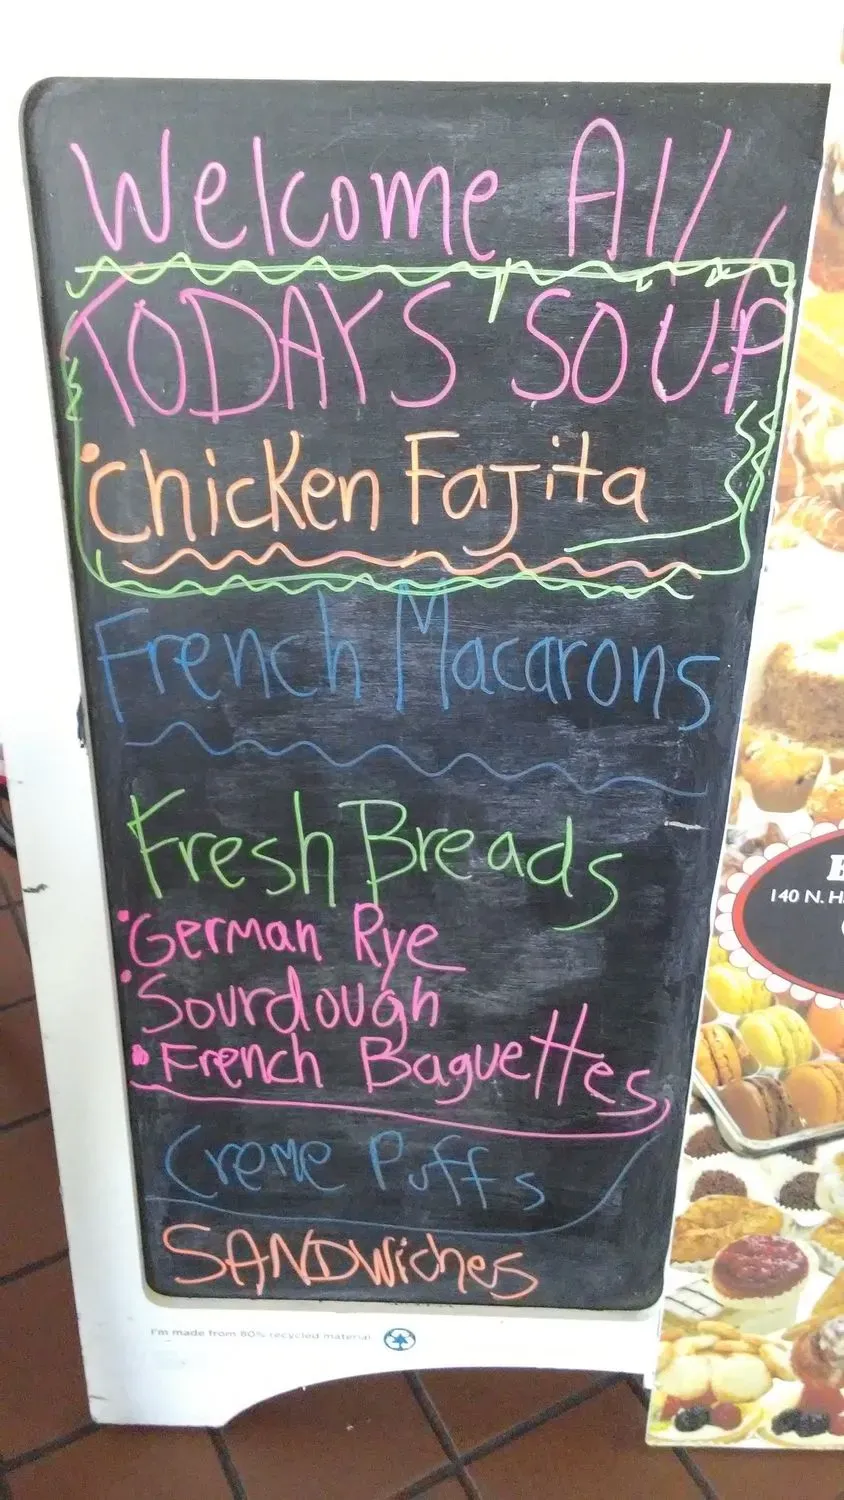 Welcome All
TODAYS SOUP
•Chicken Fajita
French Macarons
Fresh Breads
•German Rye
•Sourdough
•French Baguettes
Creme Puffs
SANDWiches
I'm made from 80% recycled material
140 N. H